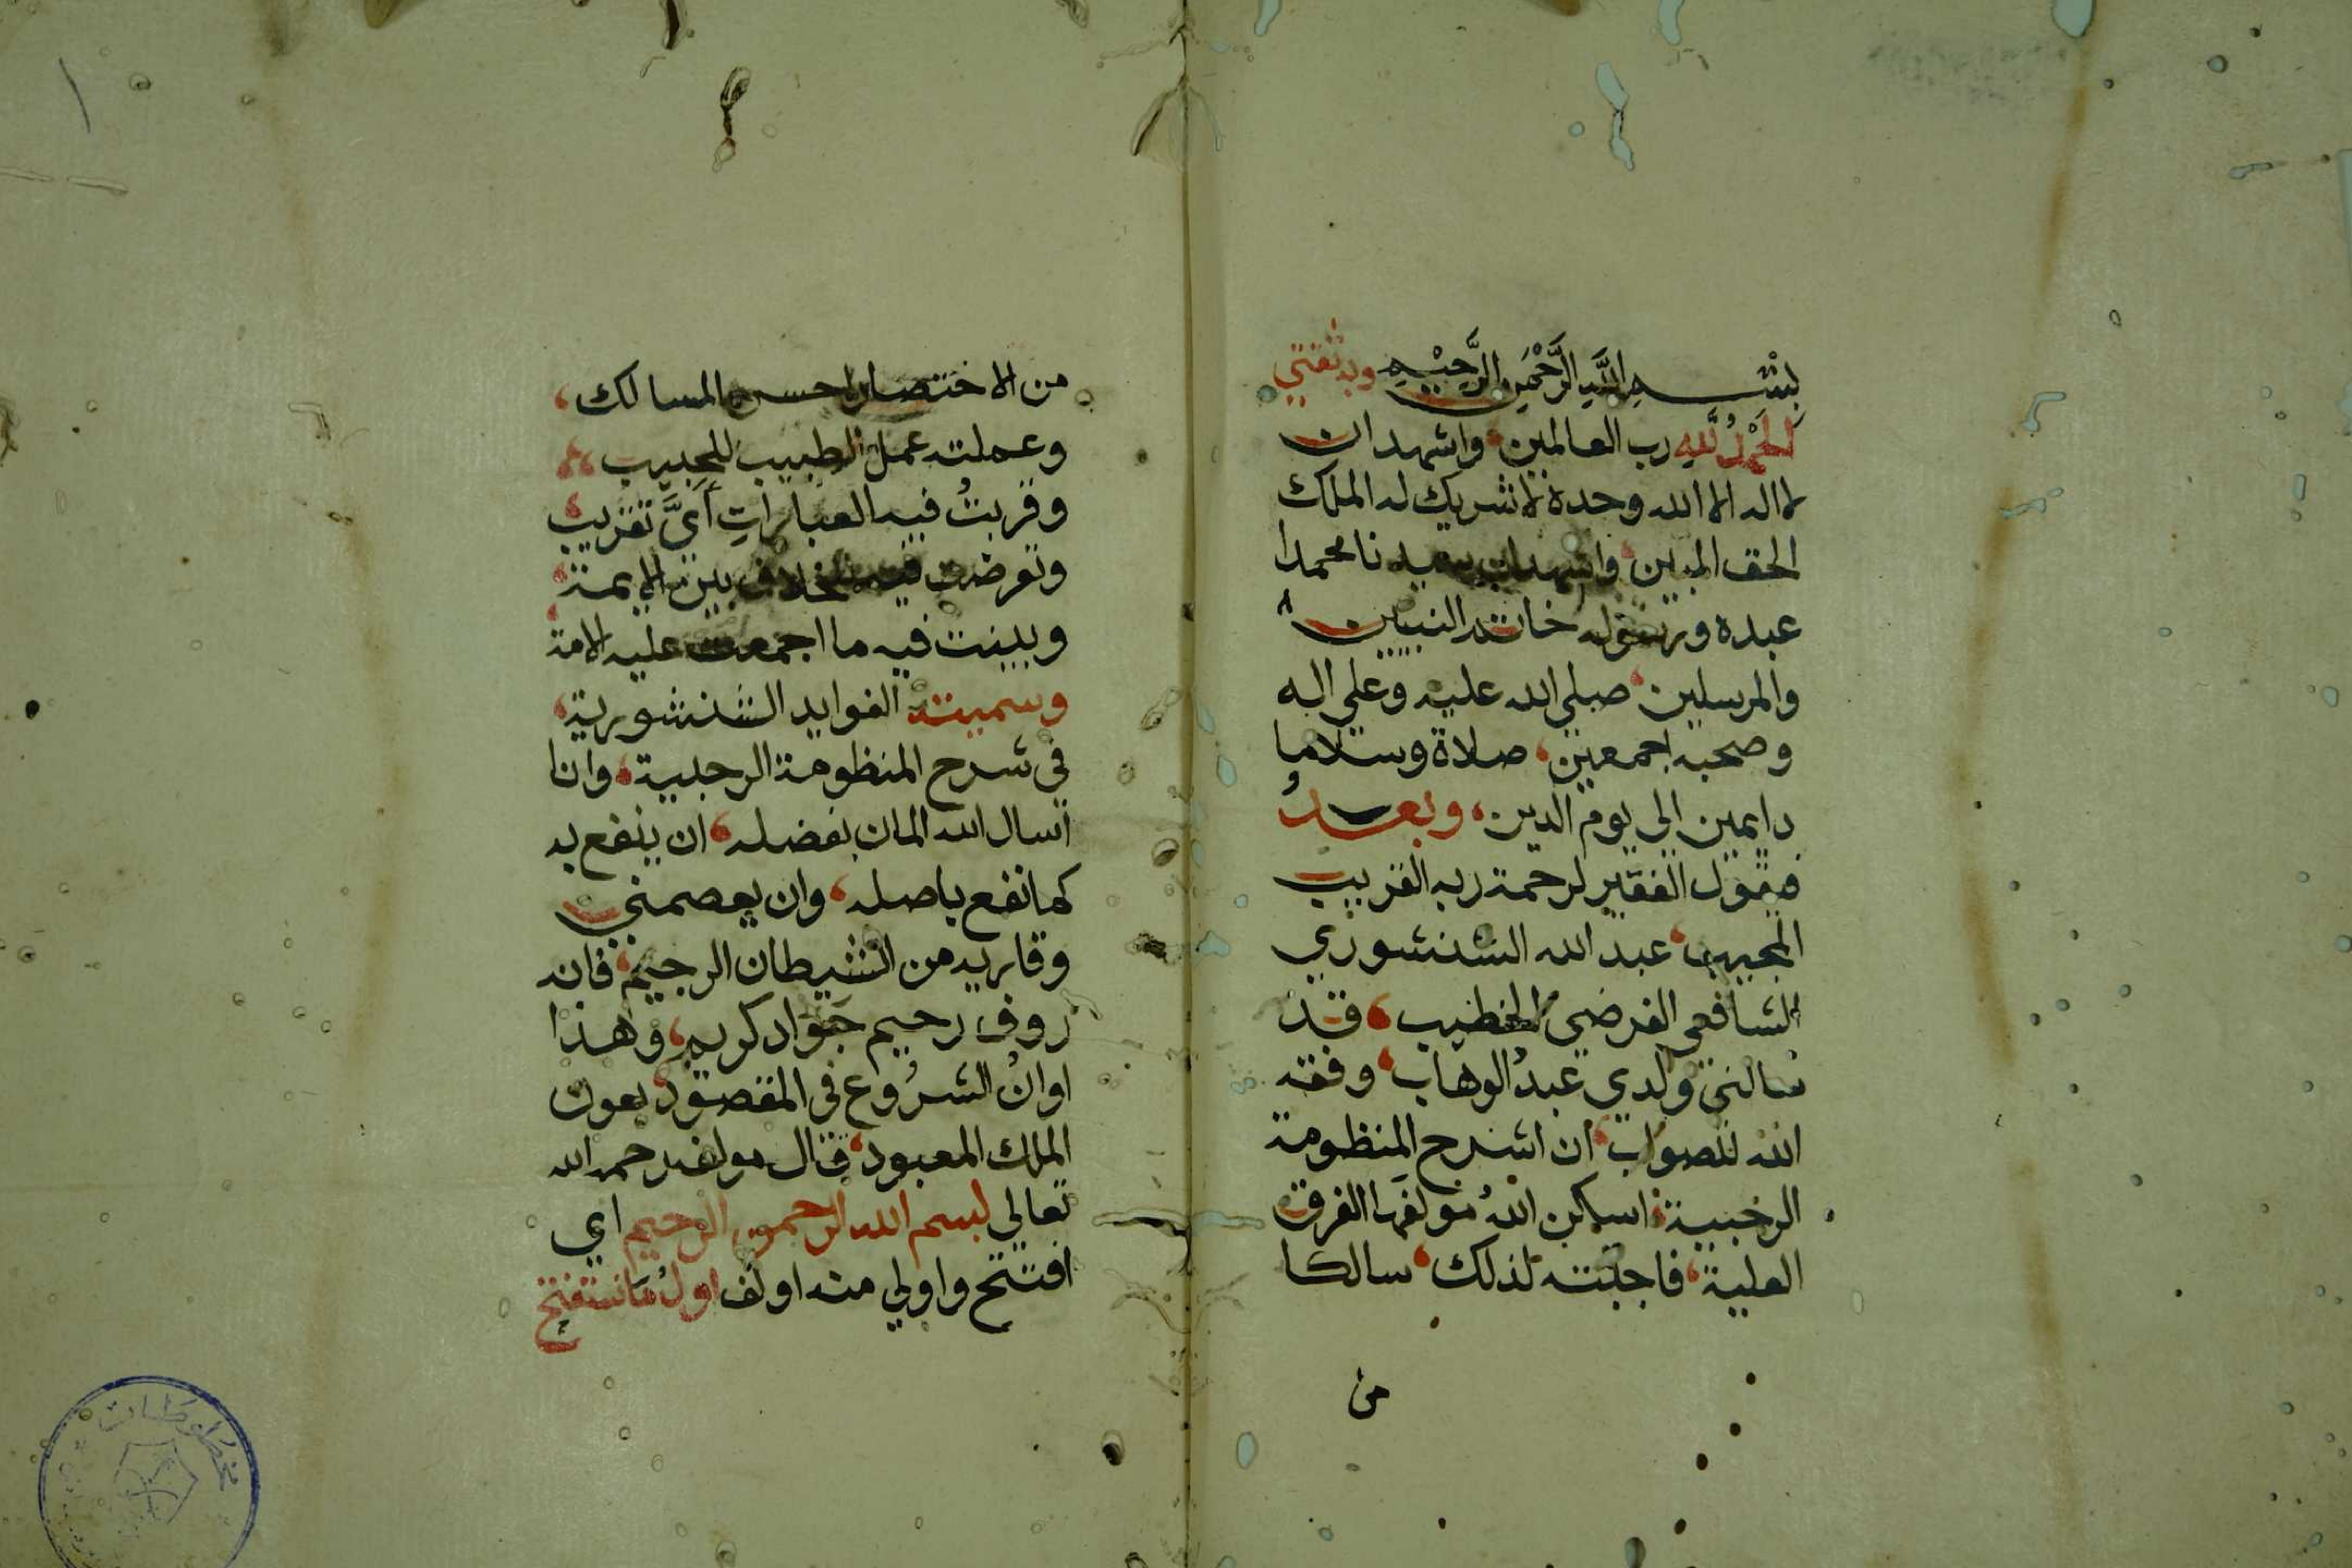 بسم الله الرحمن الرحيم وبه ثقتي
الحمد لله رب العالمين، واشهد ان
لا اله الا الله وحده لا شريك له الملك
الحق المبين، واشهد ان سيدنا محمدا
عبده ورسوله خاتم النبيين
والمرسلين، صلى الله عليه وعلى اله
وصحبه اجمعين، صلاة وسلاما
دايمين الى يوم الدين، وبعد
فيقول الفقير لرحمة ربه القريب
المجيب، عبد الله الشنشوري
الشافعي الفرضي الخطيب، قد
سالني ولدي عبد الوهاب، وفقه
الله للصواب، ان اشرح المنظومة
الرحبية، اسكن الله مولفها الغرف
العلية، فاجبته لذلك، سالكا
من
من الاختصار احسن المسالك،
وعملته عمل الطبيب للحبيب،
وقربتُ فيه العباراتِ أيَّ تقريب،
وتعرضت فيه للخلاف بين الايمة،
وبينت فيه ما اجمعت عليه الامة،
وسميته الفوايد الشنشورية،
في شرح المنظومة الرحبية، وانا
اسال الله المان بفضله، ان ينفع به
كما نفع باصله، وان يعصمني
وقاريه من الشيطان الرجيم، فانه
روف رحيم جواد كريم، وهذا
اوانُ الشرُوع في المقصود، بعون
الملك المعبود، قال مولفه رحمه الله
تعالى بسم الله الرحمن الرحيم اي
افتتح واولي منه اولف اول ما نستفتح
١
مخطوطات